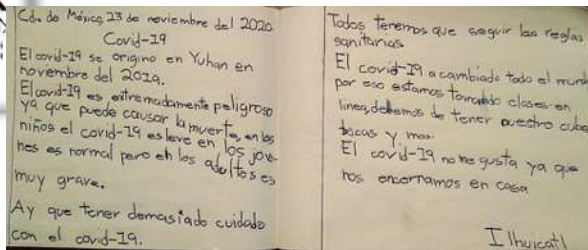 Cd. de México, 23 de noviembre del 2020.
Covid-19
El covid-19 se origino en Yuhan en
noviembre del 2019.
El covid-19 es extremadamente peligroso
ya que puede causar la muerte, en los
niños el covid-19 es leve en los jove-
nes es normal pero en los adultos es
muy grave.
Ay que tener demasiado cuidado
con el covid-19.
Todos tenemos que seguir las reglas
sanitarias
El covid-19 a cambiado todo el mun
por eso estamos tomando clases en
linea, debemos de tener nuestro cubre
bocas y
El covid-19 no me gusta ya que
nos encerramos en casa
Ilhuicatl